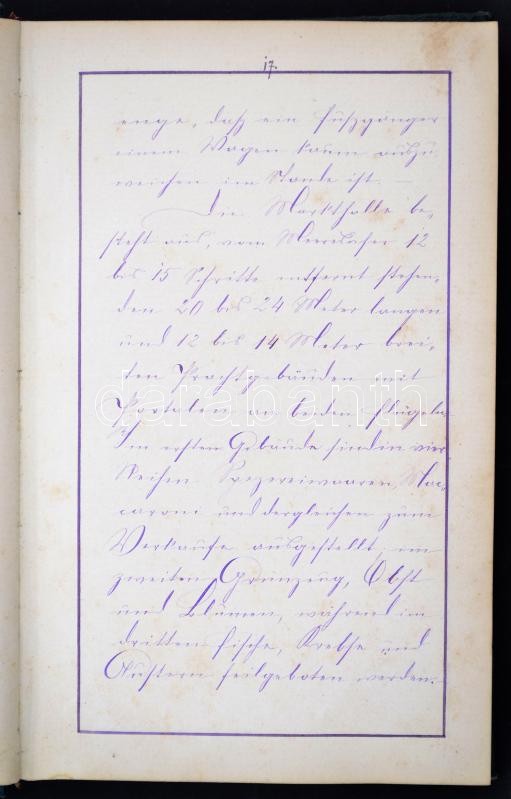 17.
enge, daß ein Fußgänger
einem Wagen kaum auszu,
weichen im Stande ist. —
Die Markthalle be,
steht aus, vom Meeresufer 12
bis 15 Schritte entfernt stehen,
den 20 bis 24 Meter langen
und 12 bis 14 Meter brei,
ten Prachtgebäuden mit
Portalen an beiden Flügeln.
Im ersten Gebäude sind in vier
Reihen Spezereiwaaren, Mac,
caroni und dergleichen zum
Verkaufe ausgestellt, im
zweiten Grünzeug, Obst
und Blumen, während im
dritten Fische, Krebse und
Austern feilgeboten werden.
darabanth